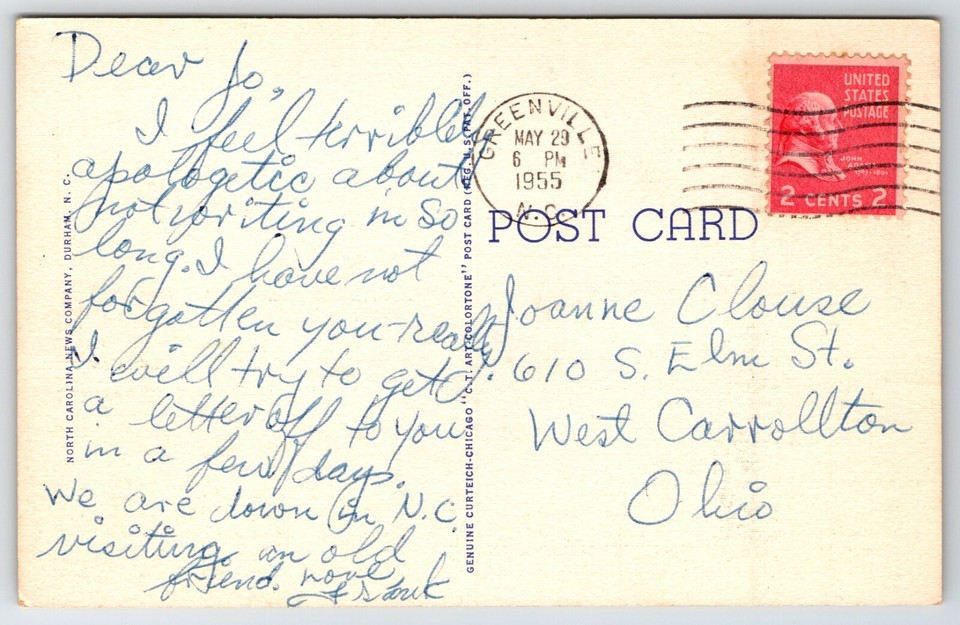 Dear Jo,
I feel terribly
apologetic about
not writing in so
long. I have not
forgotten you-really.
I will try to get
a letter off to you
in a few days.
We are down in N.C.
visiting an old
friend. Love,
Frank
NORTH CAROLINA NEWS COMPANY, DURHAM, N. C.
GENUINE CURTEICH-CHICAGO "C.T. ART-COLORTONE" POST CARD (REG. U.S. PAT. OFF.)
GREENVILLE
MAY 29
6 PM
1955
N.C.
UNITED
STATES
POSTAGE
JOHN
ADAMS
2 CENTS 2
POST CARD
Joanne Clouse
610 S. Elm St.
West Carrollton
Ohio